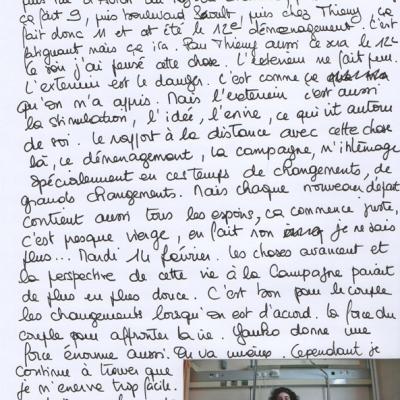 ça fait 9, puis boulevard Soult, puis chez Thierry ça
fait donc 11 et cet été le 12e déménagement. C'est
fatiguant mais ça ira. Pour Thierry aussi ce sera le 12e
le soir j'ai pensé cette chose. L'extérieur me fait peur.
L'extérieur est le danger. C'est comme ça
qu'on m'a appris. Mais l'extérieur c'est aussi
la stimulation, l'idée, l'envie, ce qui vit autour
de soi. Le rapport à la distance avec cette chose
là, ce déménagement, la campagne, m'interroge
spécialement en ces temps de changements, de
grands changements. Mais chaque nouveau départ
contient aussi tous les espoirs, ça commence juste,
c'est presque vierge, en fait non je ne sais
plus... Mardi 14 février. Les choses avancent et
la perspective de cette vie à la Campagne parait
de plus en plus douce. C'est bon pour le couple
les changements lorsqu'on est d'accord. La force du
couple pour affronter la vie. donne une
force énorme aussi. On va Cependant je
continue à trouver que
je m'énerve trop facile.